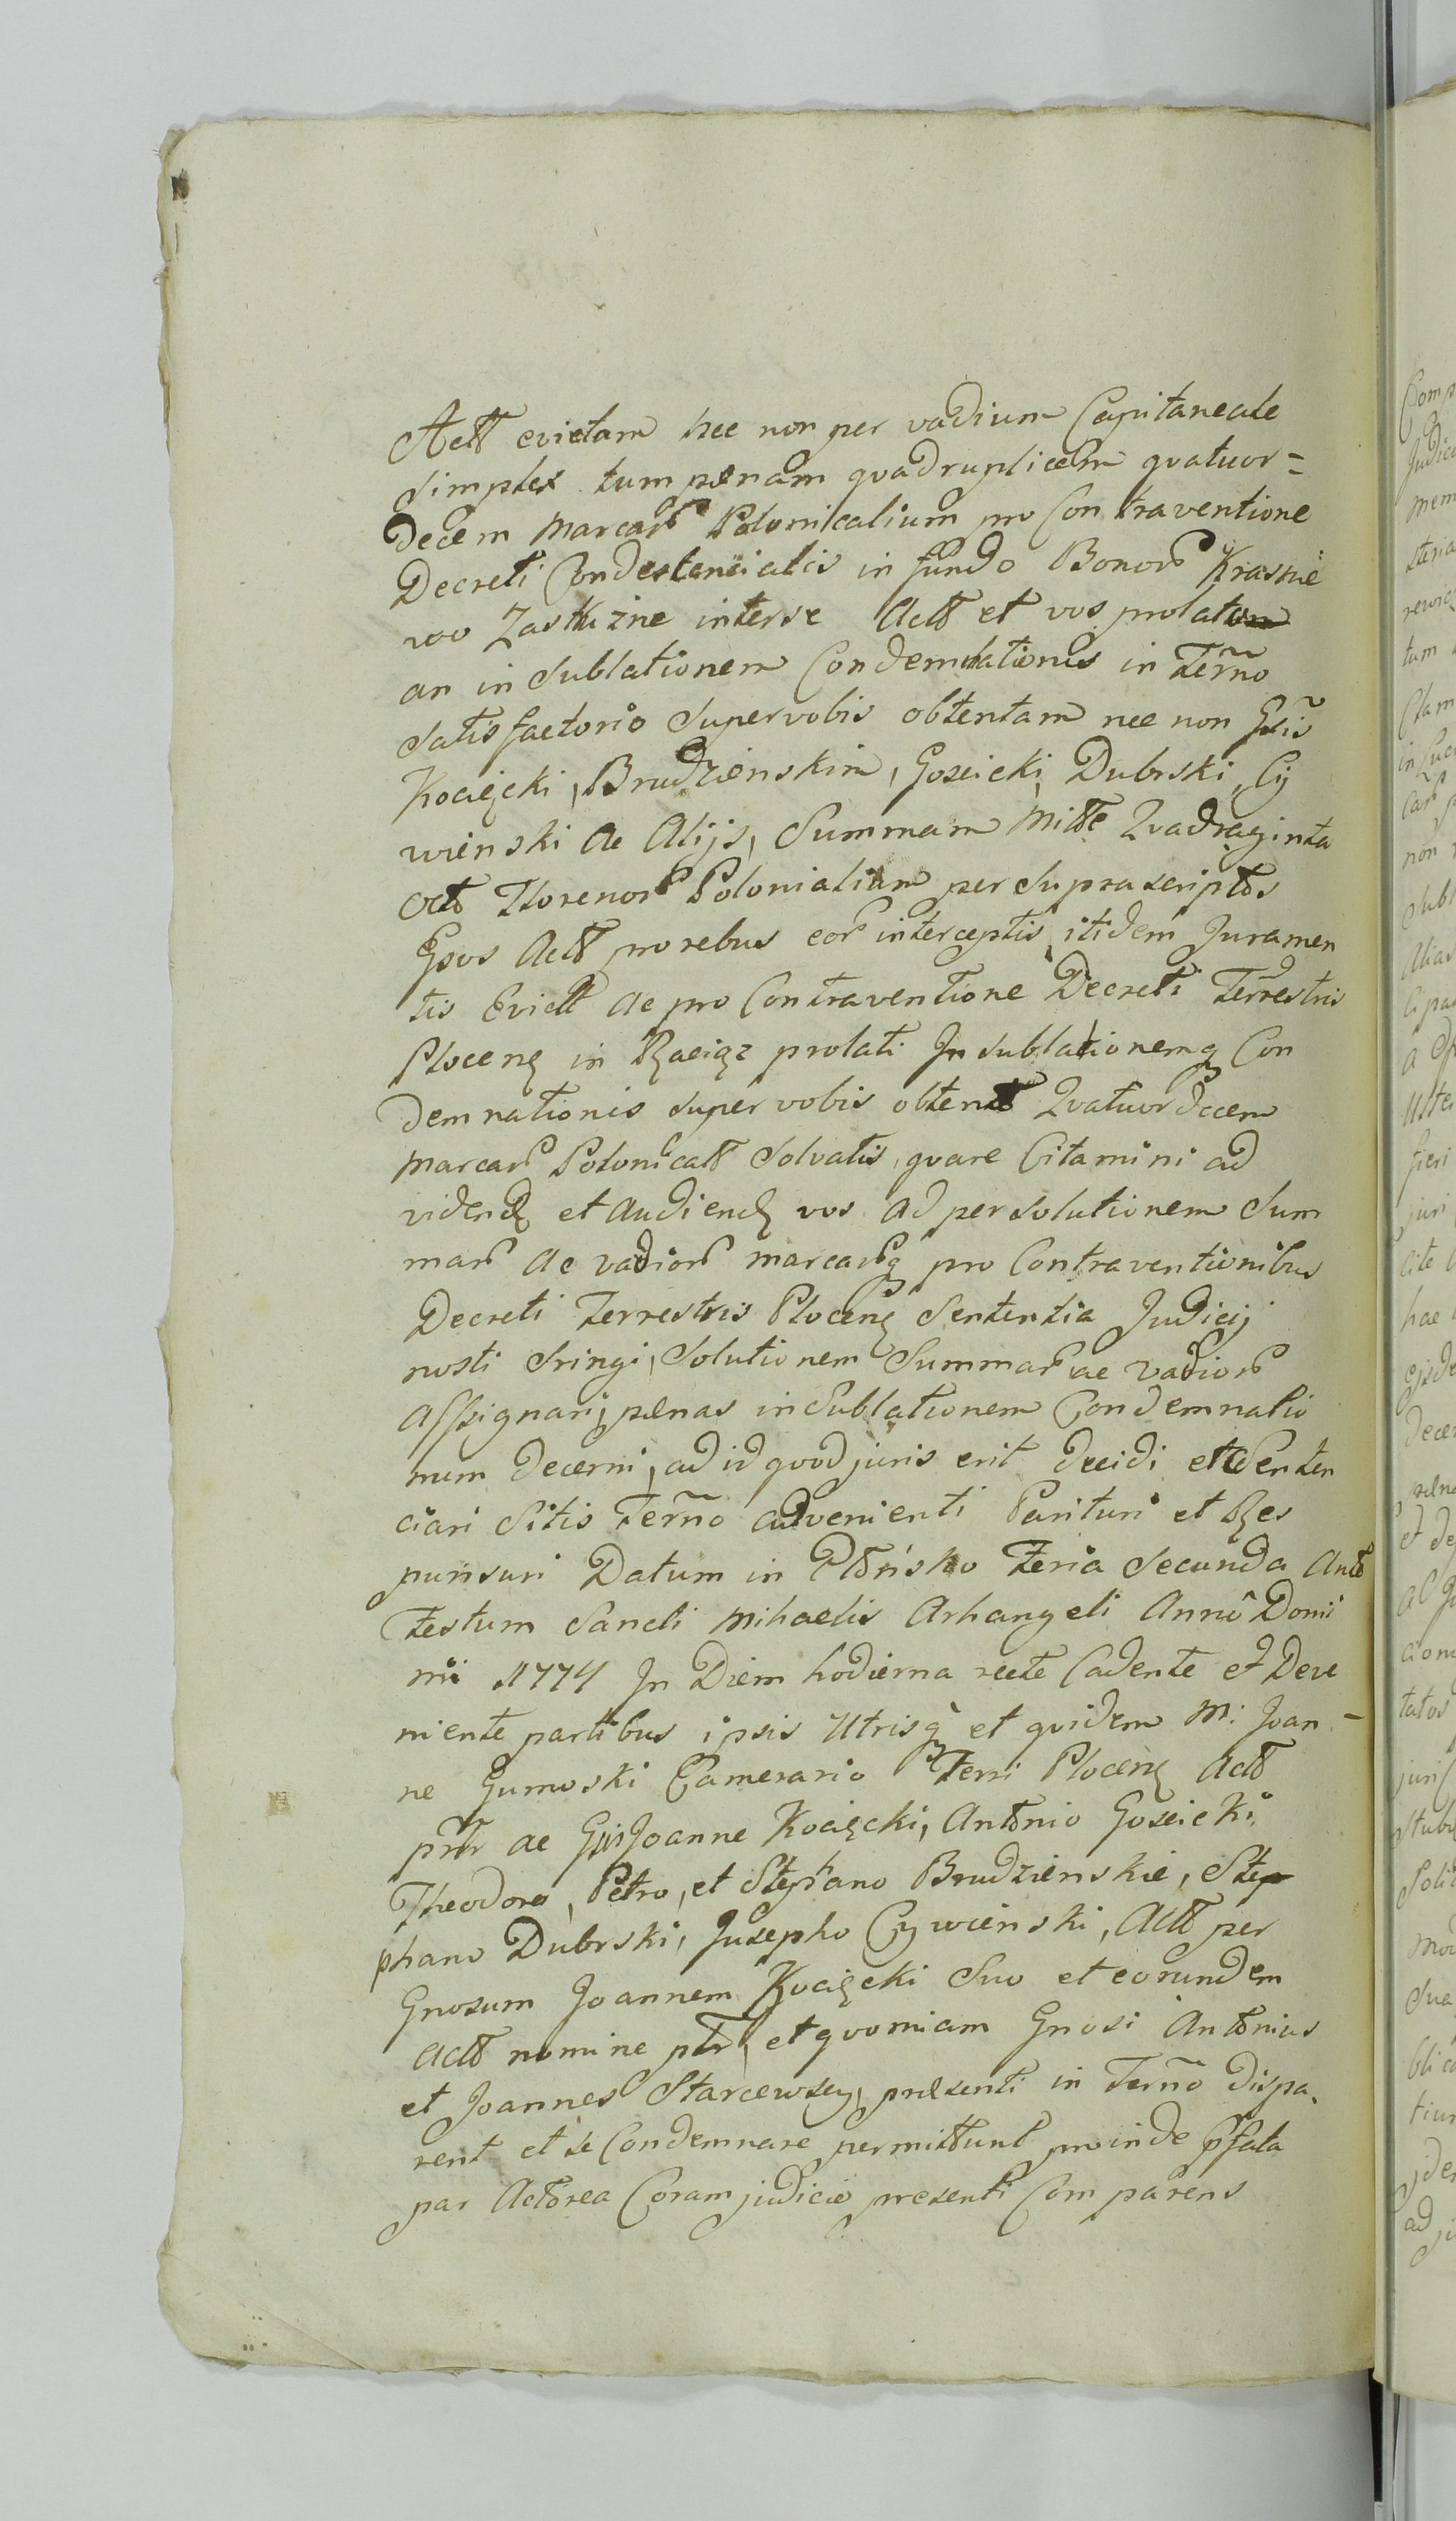 Actt evictam nec non per vadium Capitaneale
Simplex tum pænam quadruplicem quatuor=
decem Marcarum Polonicalium pro Contraventione
Decreti Condescencialis in fundo Bonorum Krasnie
wo Zastuzne interse Actt et vos prolato
an in Sublationem Condemnationis in Terño
Satisfactorio Supervobis obtentam nec non Gsis
Kocięcki, Brudzienskim, Gosicki, Dubrski, Cy
wienski ac Alijs, Summam Mille Quadraginta
octo Florenorum Polonialium per Suprascriptos
Gsos Actt pro rebus eor interceptis, itidem Juramen
tis Evictt ac pro Contraventione Decreti Terrestris
Plocenę in Rzeciąz prolati In sublationemq Con
demnationis super vobis obtentt Quatuordecem
Marcarum Polonicatt Solvatis, quare Citamini ad
videndę et Audiendę vos ad persolutionem Sum
marum ac vadiorum marcarumq pro Contraventionibus
Decreti Terrestris Plocenę Sententia Judicij
nosti Sringi, Solutionem Summarum ac vadiorum
Assignari, pænas in Sublationem Condemnatio
num Decerni, ad id quod juris erit decidi et Senten
ciari Sitis Terño advenienti Parituri et Res
punsuri Datum in Płońsko Feria Secunda Ante
Festum Sancti Mihaelis Arhangeli Anno Domi
ni 1774 In Diem hodierna recte Cadente et Deve
niente partibus ipsis Utrisq et quidem M: Joan=
ne Gumoski Camerario Terri Plocenę Actt
pntr ac Gsis Joanne Kocięcki, Antonio Gosicki,
Theodoro, Petro, et Stephano Brudzienskie, Step
phano Dubrski, Jusepho Cywienski, Actt per
Gnosum Joannem Kocięcki Suo et eorundem
Actt nomine ptr, et quoniam Gnosi Antonius
et Joannes Starcewscy, præsenti in Terño dispa,
rent et se Condemnare permittunt proinde pfata
par Actorea Coram judicio presenti Comparens